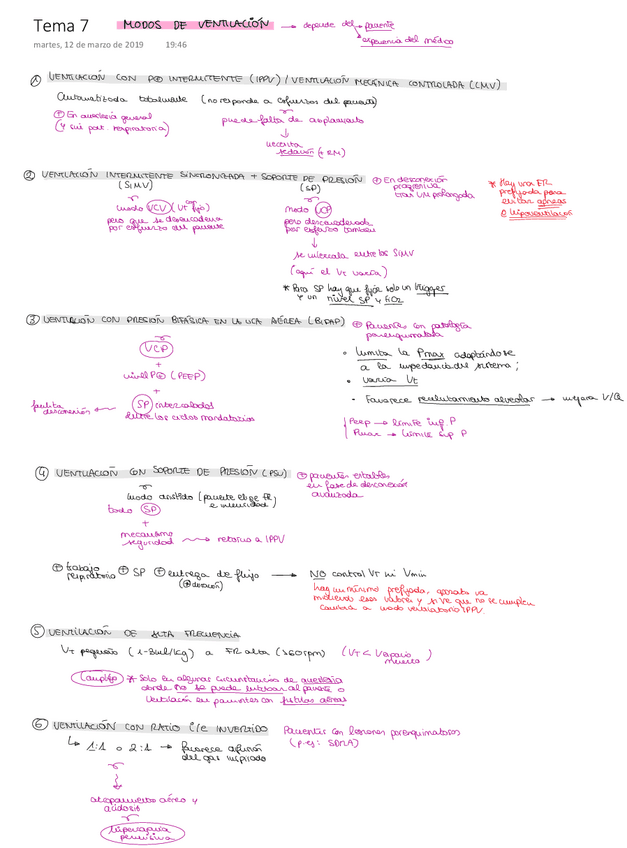 Tema 7
MODOS DE VENTILACIÓN → depende del → paciente
→ experiencia del médico
martes, 12 de marzo de 2019 19:46
① VENTILACIÓN CON P⊕ INTERMITENTE (IPPV) / VENTILACIÓN MECÁNICA CONTROLADA (CMV)
Automatizada totalmente (no responde a esfuerzos del paciente)
⊕ En anestesia general
(y sin pat. respiratoria)
puede falta de acoplamiento
↓
necesita
sedación (+RM)
② VENTILACIÓN INTERMITENTE SINCRONIZADA + SOPORTE DE PRESIÓN
(SIMV) (SP)
⊕ En desconexión
progresiva
tras VM prolongada
* Hay una FR
prefijada para
evitar apneas
o hipoventilación
modo VCV (VT fijo)
pero que se desencadena
por esfuerzo del paciente
modo VCP
pero desencadenada
por esfuerzo también
↓
se intercala entre las SIMV
(aquí el VT varía)
* Para SP hay que fijar solo un trigger
y un nivel SP y FiO2
③ VENTILACIÓN CON PRESIÓN BIFÁSICA EN LA VÍA AÉREA (BIPAP)
⊕ Pacientes con patología
parenquimatosa
VCP
+
nivel P⊕ (PEEP)
+
SP intercalados
entre los ciclos mandatorios
facilita
desconexión
• Limita la Pmax adaptándose
a la impedancia del sistema;
• varía VT
• Favorece reclutamiento alveolar → mejora V/Q
Peep → límite inf. P
Pmax → límite sup P
④ VENTILACIÓN CON SOPORTE DE PRESIÓN (PSV)
⊕ pacientes estables
en fase de desconexión
avanzada
modo asistido (paciente elige FR
e intensidad)
todo SP
+
mecanismo
seguridad → retorno a IPPV
⊕ trabajo
respiratorio ⊕ SP ⊕ entrega de flujo → NO control VT ni Vmin
(⊕ duración)
hay un mínimo prefijado, aparato va
midiendo esos valores y si ve que no se cumplen
cambia a modo ventilatorio IPPV.
⑤ VENTILACIÓN DE ALTA FRECUENCIA
VT pequeño (1-3ml/kg) a FR alta (>60rpm) (VT < Vespacio
muerto)
* Solo en algunas circunstancias de anestesia
donde no se puede intubar al paciente o
ventilación en pacientes con fístulas aéreas
⑥ VENTILACIÓN CON RATIO I/E INVERTIDO
Pacientes con lesiones parenquimatosas
(p.ej: SDRA)
↳ 1:1 o 2:1 → favorece difusión
del gas inspirado
↓
atrapamiento aéreo y
acidosis
↓
hipercapnia
permisiva